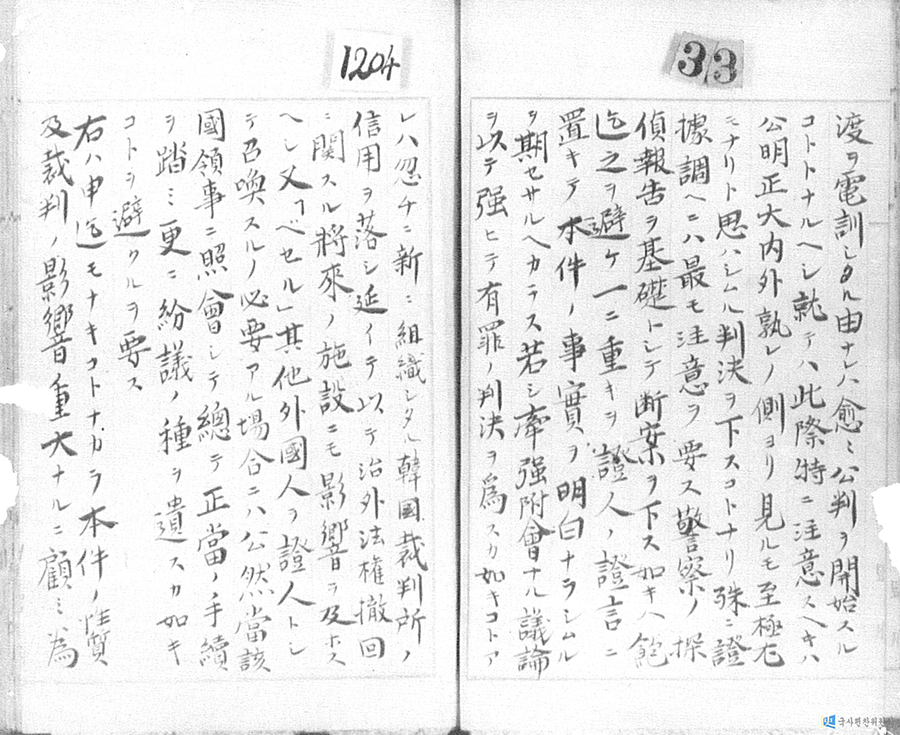 33
渡ヲ電訓シタル由ナレハ愈ミ公判ヲ開始スル
コトトナルヘシ就テハ此際特ニ注意スヘキハ
公明正大内外孰レノ側ヨリ見ルモ至極尤
モナリト思ハシムル判決ヲ下スコトナリ殊ニ證
據調ヘニハ最モ注意ヲ要ス警察ノ探
偵報告ヲ基礎トシテ断案ヲ下ス如キハ飽
迄之ヲ避ケ一ニ重キヲ證人ノ證言ニ
置キテ本件ノ事實ヲ明白ナラシムル
ヲ期セサルヘカラス若シ牽强附會ナル議論
ヲ以テ强ヒテ有罪ノ判決ヲ爲スカ如キコトア
1204
レハ忽チニ新ニ組織シタル韓國裁判所ノ
信用ヲ落シ延イテ以テ治外法權撤回
ニ関スル將來ノ施設ニモ影響ヲ及ホス
ヘシ又「ベセル」其他外國人ヲ證人トシ
テ召喚スルノ必要アル場合ニハ公然當該
國領事ニ照會シテ總テ正當ノ手續
ヲ踏ミ更ニ紛議ノ種ヲ遺スカ如キ
コトヲ避クルヲ要ス
右ハ申迄モナキコトナカラ本件ノ性質
及裁判ノ影響重大ナルニ顧ミ爲
국사편찬위원회